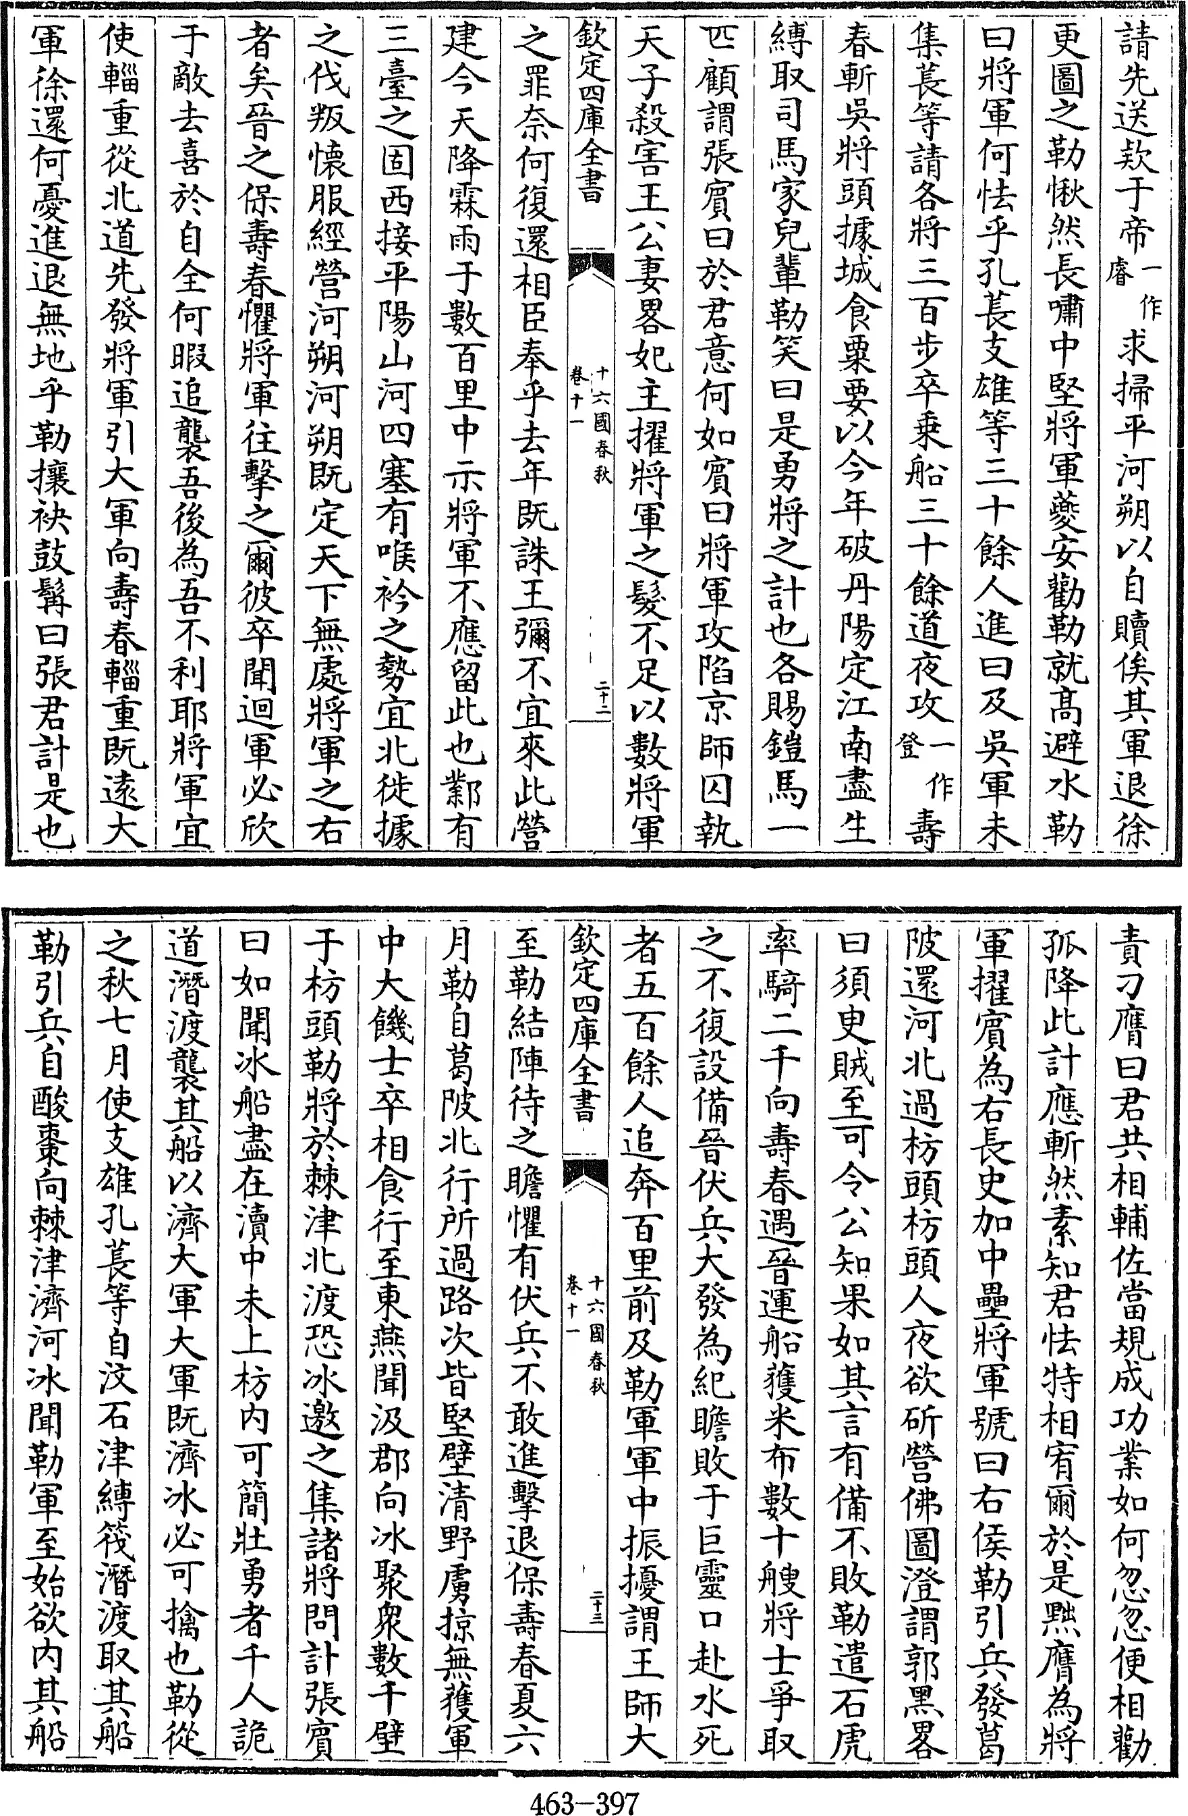 請先送欵于帝一作睿求掃平河朔以自贖俟其軍退徐
更圖之勒愀然長嘯中堅將軍夔安勸勒就髙避水勒
曰將軍何怯乎孔萇支雄等三十餘人進曰及吳軍未
集萇等請各將三百步卒乗船三十餘道夜攻一作登壽
春斬吳將頭據城食粟要以今年破丹陽定江南盡生
縛取司馬家兒輩勒笑曰是勇將之計也各賜鎧馬一
匹顧謂張賔曰於君意何如賔曰將軍攻陷京師囚執
天子殺害王公妻畧妃主擢將軍之髮不足以數將軍
欽定四庫全書 十六國春秋 卷十一 二十二
之罪奈何復還相臣奉乎去年既誅王彌不宜來此營
建今天降霖雨于數百里中示將軍不應留此也鄴有
三臺之固西接平陽山河四塞有喉衿之勢宜北徙據
之伐叛懷服經營河朔河朔既定天下無處將軍之右
者矣晉之保壽春懼將軍往擊之爾彼卒聞迴軍必欣
于敵去喜於自全何暇追襲吾後為吾不利耶將軍宜
使輜重從北道先發將軍引大軍向壽春輜重既逺大
軍徐還何憂進退無地乎勒攘袂鼓髯曰張君計是也
責刁膺曰君共相輔佐當規成功業如何忽忽便相勸
孤降此計應斬然素知君怯特相宥爾於是黜膺為將
軍擢賔為右長史加中壘將軍號曰右侯勒引兵發葛
陂還河北過枋頭枋頭人夜欲斫營佛圖澄謂郭黑畧
曰須臾賊至可令公知果如其言有備不敗勒遣石虎
率騎二千向壽春遇晉運船獲米布數十艘將士爭取
之不復設備晉伏兵大發為紀瞻敗于巨靈口赴水死
者五百餘人追奔百里前及勒軍軍中振擾謂王師大
欽定四庫全書 十六國春秋 卷十一 二十三
至勒結陣待之瞻懼有伏兵不敢進擊退保壽春夏六
月勒自葛陂北行所過路次皆堅壁清野虜掠無獲軍
中大饑士卒相食行至東燕聞汲郡向冰聚衆數千壁
于枋頭勒將於棘津北渡恐冰邀之集諸將問計張賔
曰如聞冰船盡在瀆中未上枋内可簡壯勇者千人詭
道潛渡襲其船以濟大軍大軍既濟冰必可擒也勒從
之秋七月使支雄孔萇等自汶石津縛筏潛渡取其船
勒引兵自酸棗向棘津濟河冰聞勒軍至始欲内其船
463-397